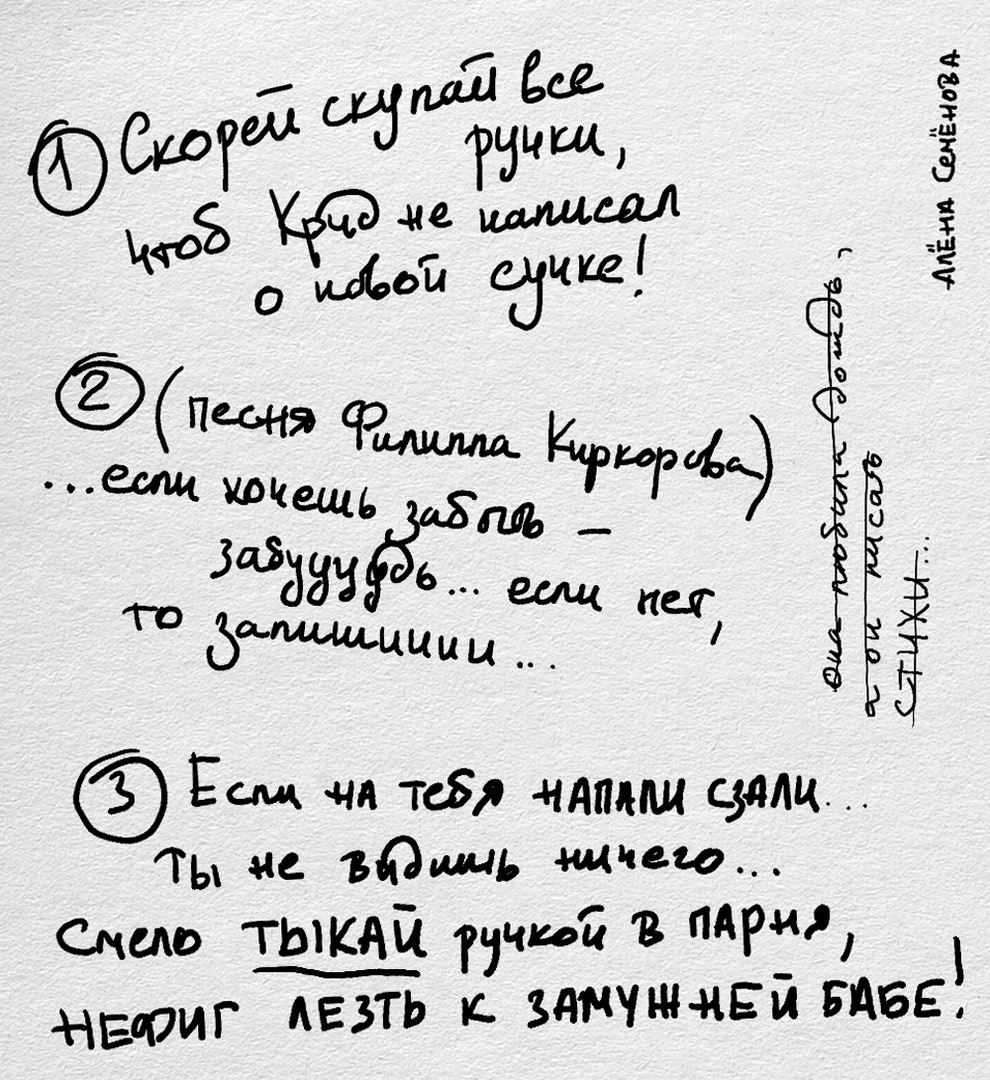 ① Скорей скупай все
ручки,
чтоб Крид не написал
о новой сучке!
② (песня Филиппа Киркорова)
...если хочешь забыть –
забуууудь... если нет,
то запишииии...
③ Если на тебя напали сзали...
Ты не видишь ничего...
Смело ТЫКАЙ ручкой в парня,
НЕФИГ ЛЕЗТЬ К ЗАМУЖНЕЙ БАБЕ!
она любила дождь,
а он писать
стихи...
АЛЁНА СЕМЁНОВА